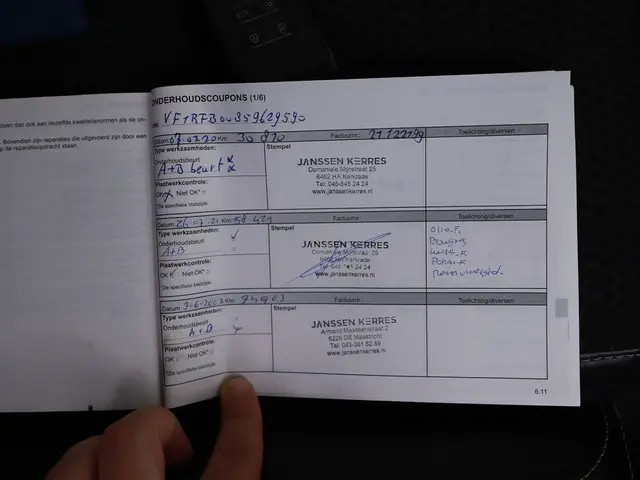 doen dan ook aan dezelfde kwaliteitsnormen als de on-
Bovendien zijn reparaties die uitgevoerd zijn door een
op de reparatieopdracht staan.
ONDERHOUDSCOUPONS (1/6)
VF1RFB00359629590
Datum: 07.07.20 Km: 30 820 Factuurnr.: 2112219 Toelichting/diversen
Type werkzaamheden:
Onderhoudsbeurt
A+B beurt
Plaatwerkcontrole:
OK Niet OK*
*Zie specifieke bladzijde
Stempel
JANSSEN KERRES
Domaniale Mijnstraat 25
6462 HA Kerkrade
Tel: 045-545 24 24
www.janssenkerres.nl
Datum: 26-07-21 Km: 58 429 Factuurnr.: Toelichting/diversen
Type werkzaamheden:
Onderhoudsbeurt
A+B
Plaatwerkcontrole:
OK Niet OK*
*Zie specifieke bladzijde
Stempel
JANSSEN KERRES
Domaniale Mijnstraat 25
Kerkrade
24 24
www.janssenkerres.nl
Datum: 9-6-2022 Km: Factuurnr.: Toelichting/diversen
Type werkzaamheden:
Onderhoudsbeurt
A+B
Plaatwerkcontrole:
OK Niet OK*
*Zie specifieke bladzijde
Stempel
JANSSEN KERRES
Armand Maassenstraat 2
6226 DE Maastricht
Tel. 043-361 62 88
www.janssenkerres.nl
6.11